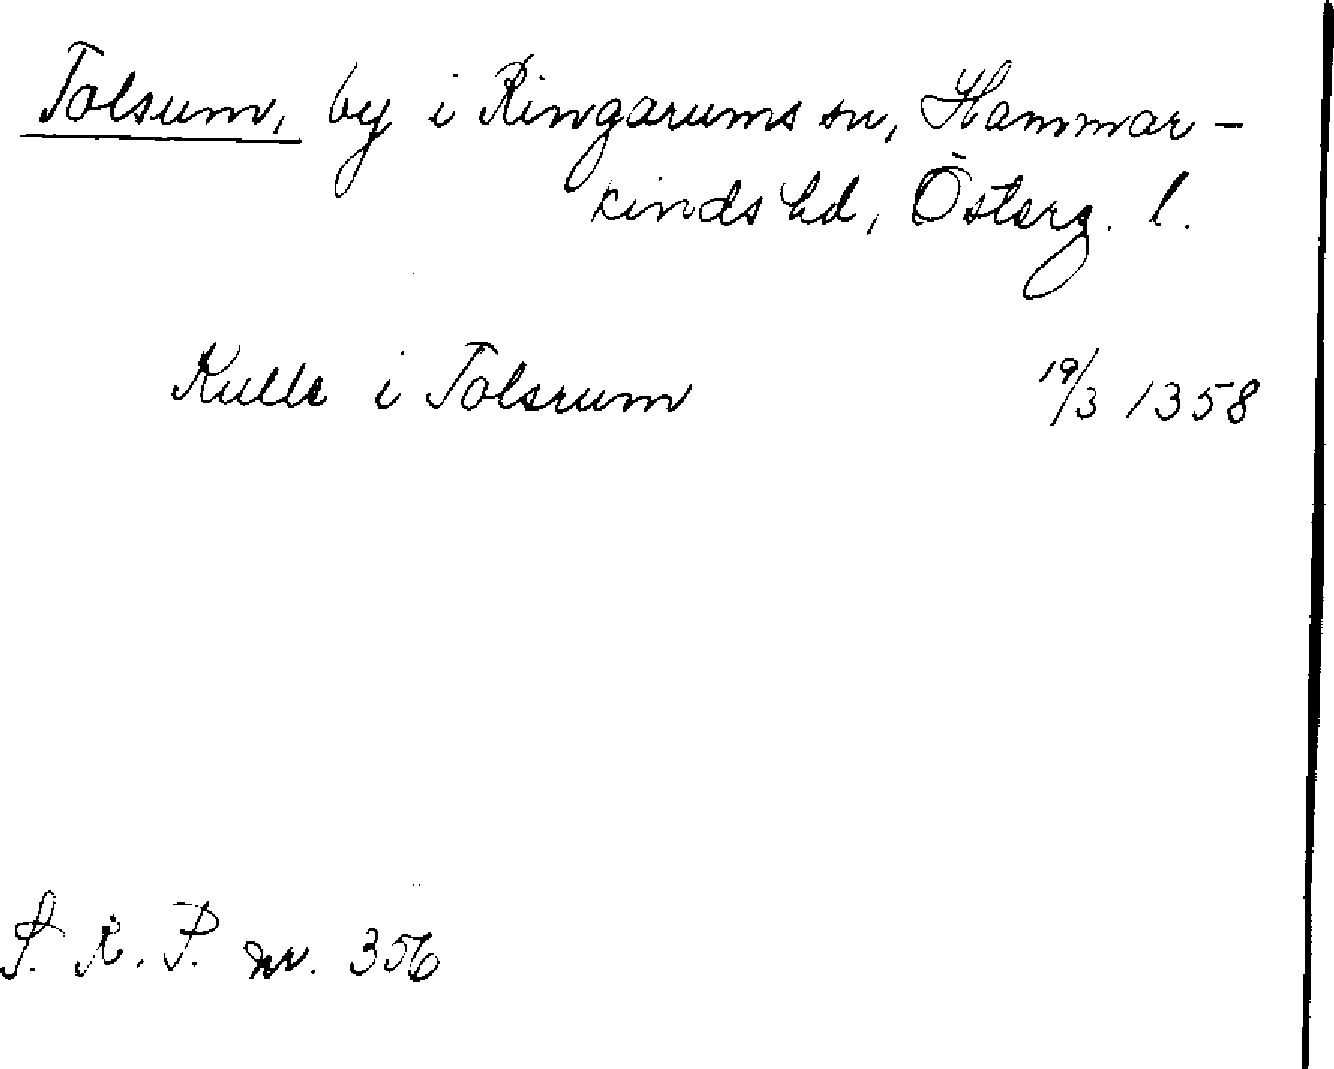 Tolsum, by i Ringarums sn, Hammar-
kinds hd, Österg. l.
Kulle i Tolsrum 19/3 1358
S. R. P. nr. 356